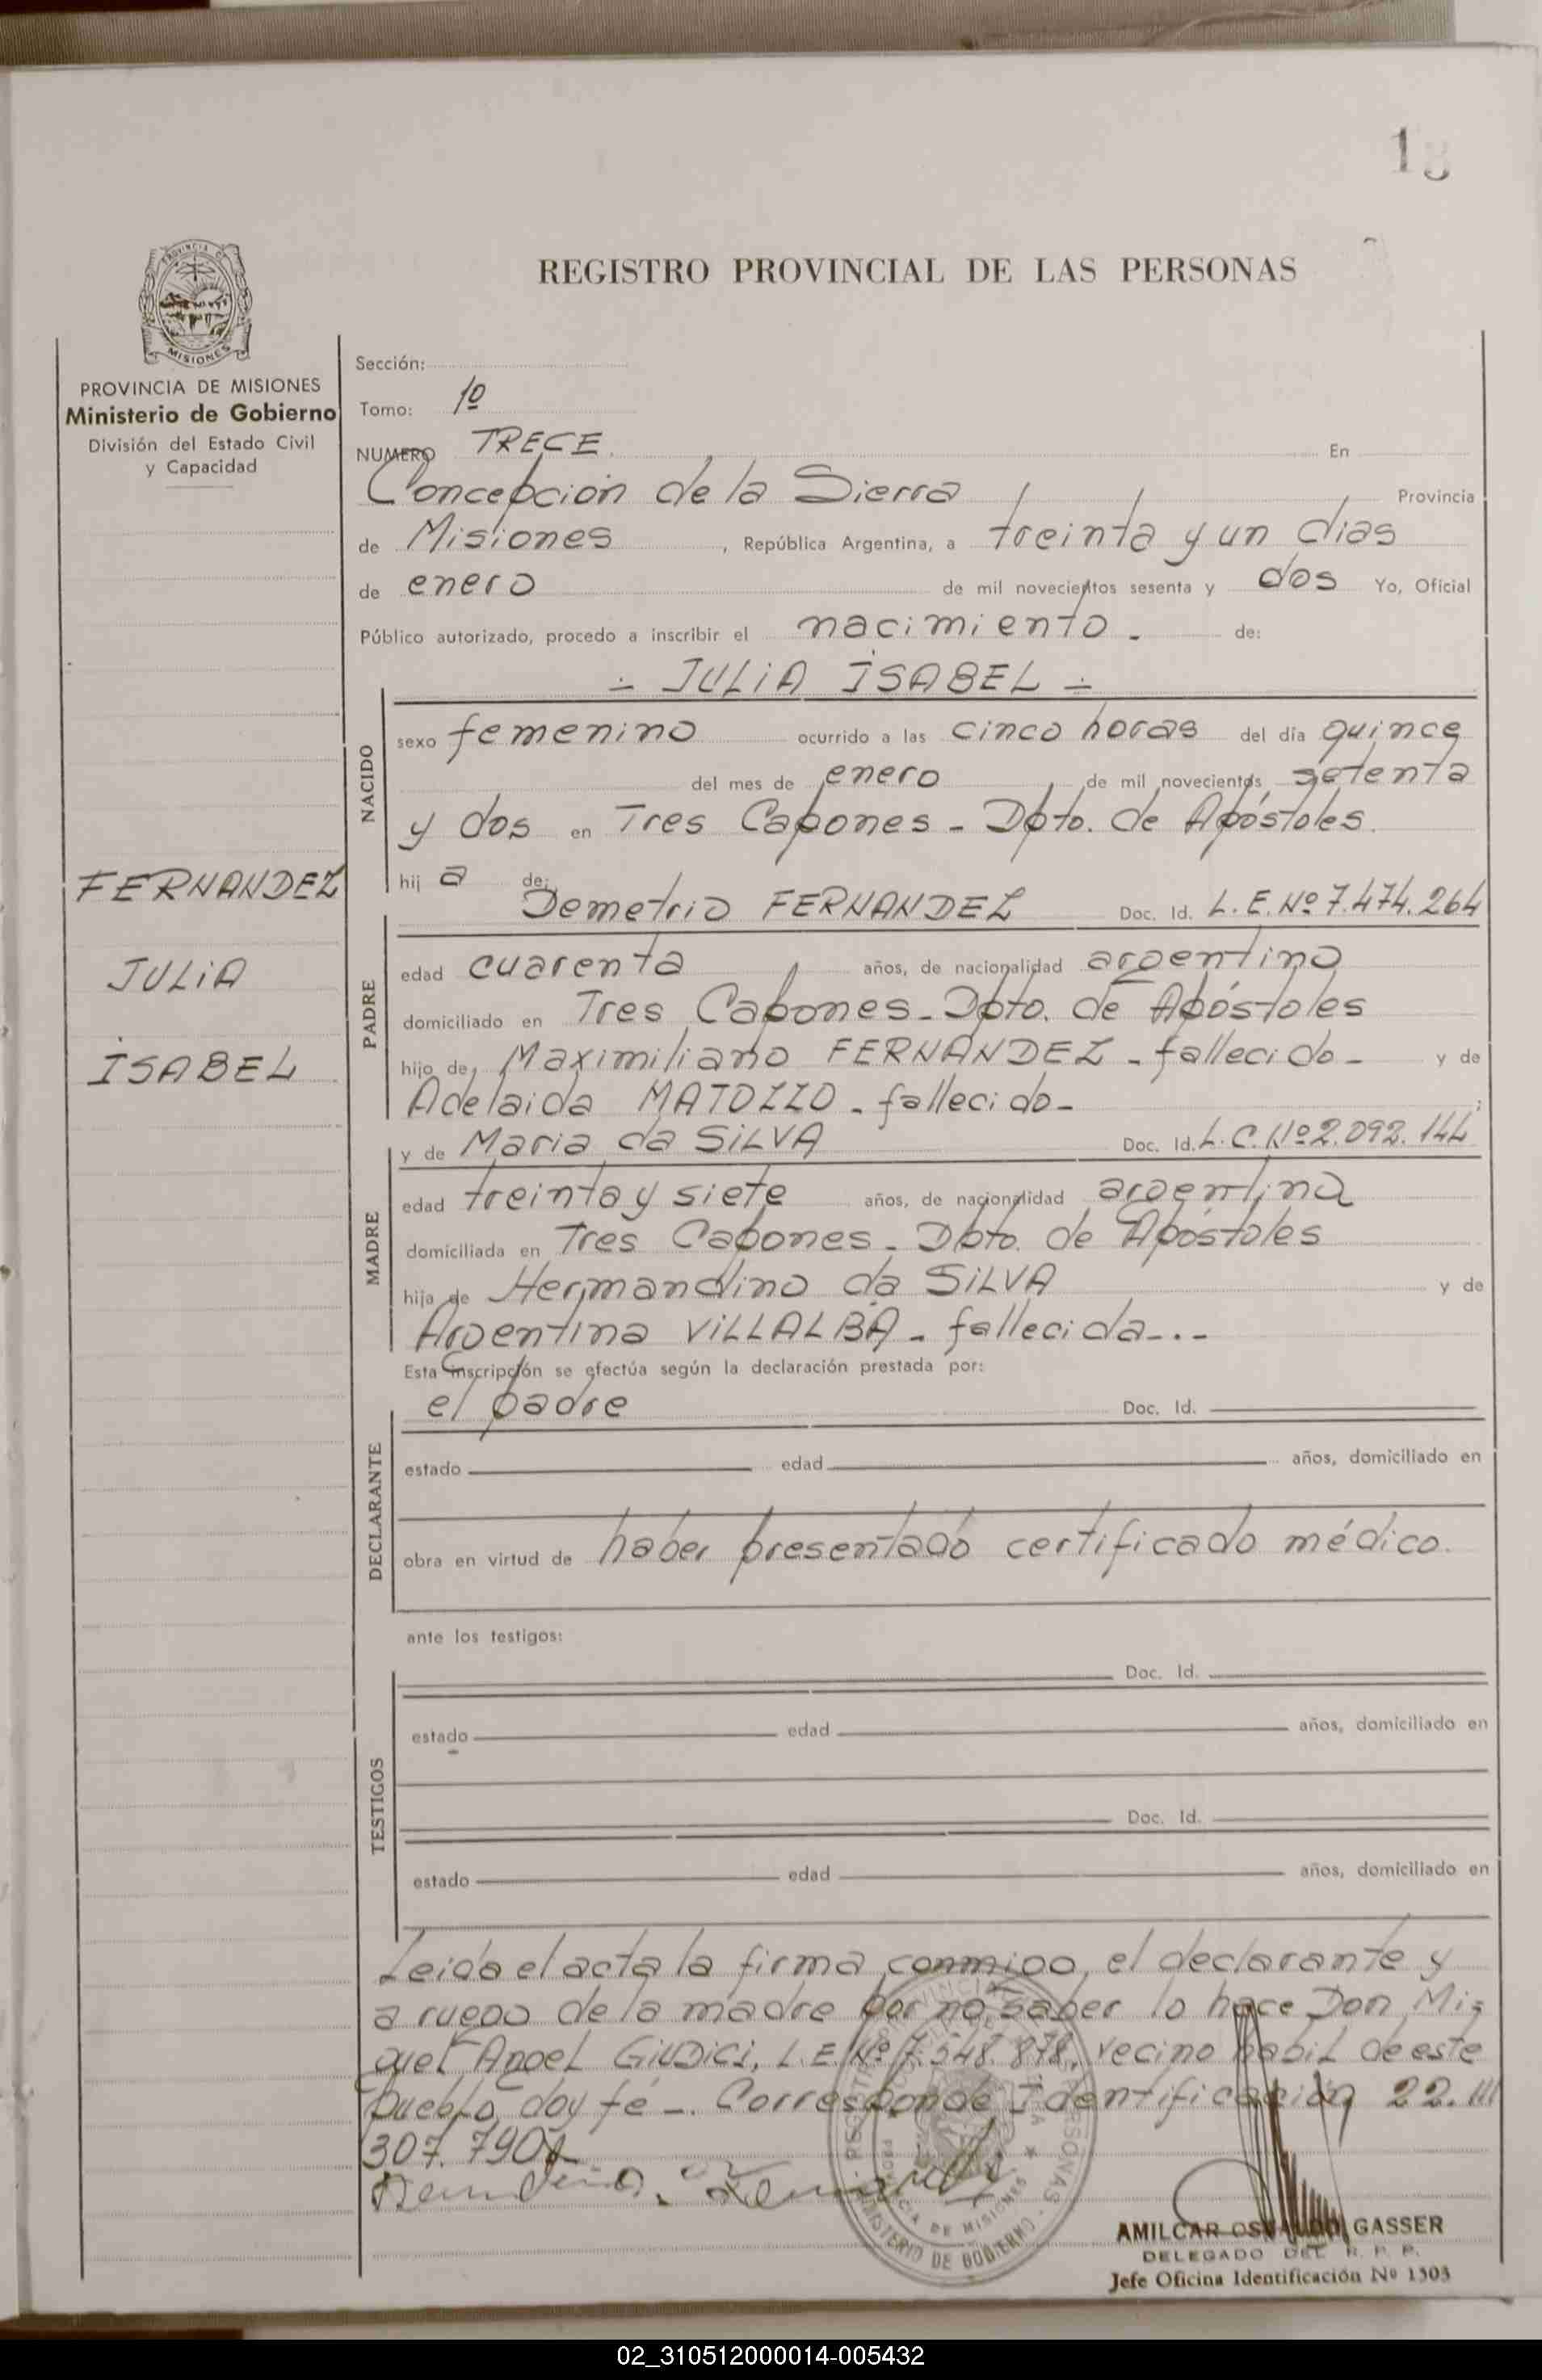 1
REGISTRO PROVINCIAL DE LAS PERSONAS
MISIONES
PROVINCIA DE MISIONES
Ministerio de Gobierno
División del Estado Civil
y Capacidad
Sección:
Tomo: 1º
NUMERO TRECE. En
Concepción de la Sierra Provincia
de Misiones, República Argentina, a treinta y un dias
de enero de mil novecientos sesenta y dos Yo, Oficial
Público autorizado, procedo a inscribir el nacimiento - de:
- JULIA ISABEL -
NACIDO
sexo femenino ocurrido a las cinco horas del día quince
del mes de enero de mil novecientos, setenta
y dos en Tres Capones - Dpto. de Apóstoles.
hij a de:
FERNANDEZ
JULIA
ISABEL
Demetrio FERNANDEZ Doc. Id. L.E. Nº 7.474.264
PADRE
edad cuarenta años, de nacionalidad argentino
domiciliado en Tres Capones - Dpto. de Apóstoles
hijo de, Maximiliano FERNANDEZ - fallecido - y de
Adelaida MATOZZO - fallecido - ;
y de Maria da SILVA Doc. Id. L.C. Nº 2.092.144
MADRE
edad treinta y siete años, de nacionalidad argentina
domiciliada en Tres Capones - Dpto. de Apóstoles
hija de Hermandino da SILVA y de
Argentina VILLALBA - fallecida -.-
Esta inscripción se efectúa según la declaración prestada por:
el padre Doc. Id.
DECLARANTE
estado edad años, domiciliado en
obra en virtud de haber presentado certificado médico.
ante los testigos:
TESTIGOS
Doc. Id.
estado edad años, domiciliado en
Doc. Id.
estado edad años, domiciliado en
Leida el acta la firma conmigo, el declarante y
a ruego de la madre por no saber lo hace Don Mi-
guel Angel GIUDICI, L.E. Nº 7.548.878, vecino habil de este
Pueblo, doy fé -. Corresponde Identificación 22.
307.790
MINISTERIO DE GOBIERNO
PROVINCIA DE MISIONES
AMILCAR OSVALDO GASSER
DELEGADO DEL R. P. P.
Jefe Oficina Identificación Nº 1303
02_310512000014-005432